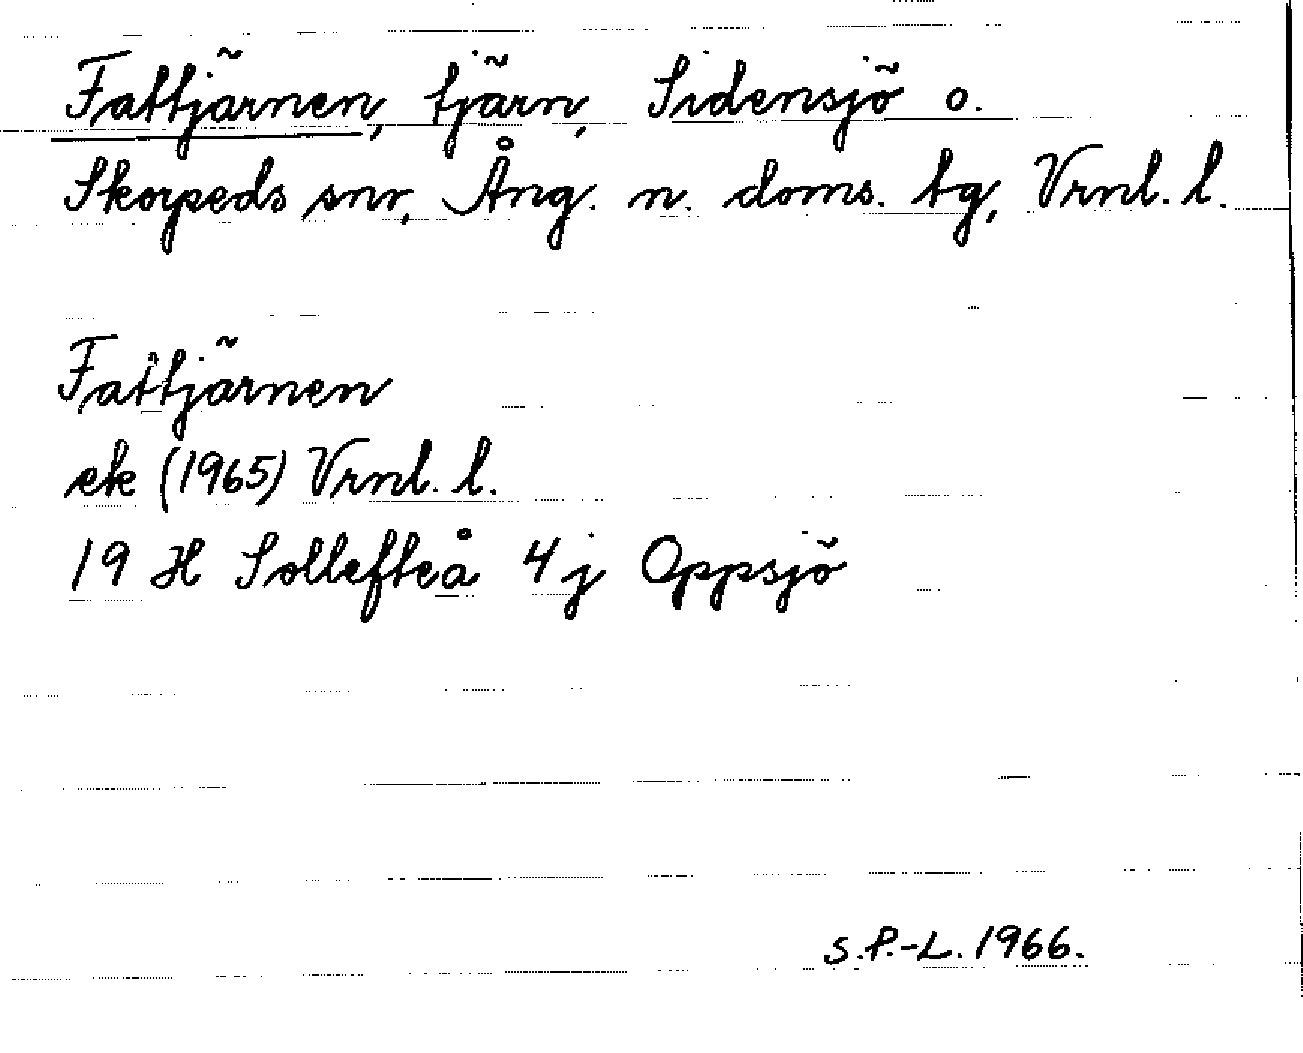 Fattjärnen, tjärn, Sidensjö o.
Skorpeds snr, Ång. n. doms. tg, Vrnl. l.
Fattjärnen
ek (1965) Vrnl. l.
19 H Sollefteå 4 j Oppsjö
S.P.-L. 1966.